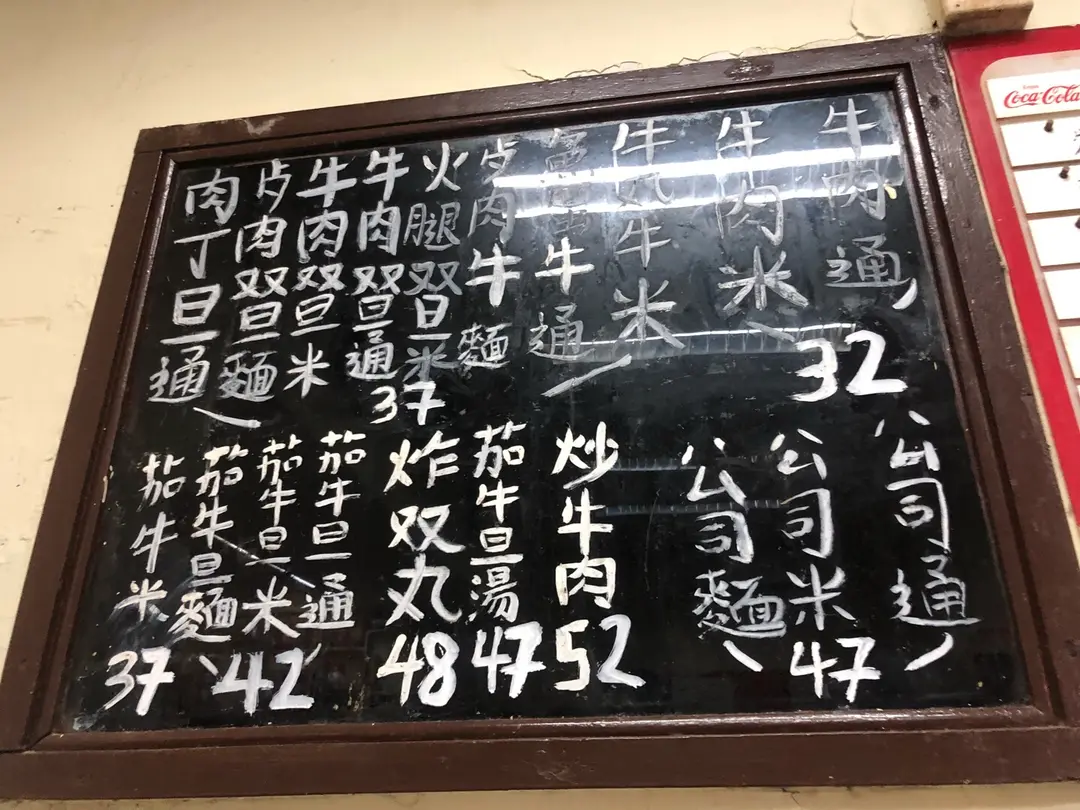 牛肉通
牛肉米
牛丸牛米
牛通
32
歺肉牛麵
火腿双旦米
牛肉双旦通
牛肉双旦米
歺肉双旦麵
肉丁旦通
37
公司通
公司米
公司麵
47
炒牛肉
52
茄牛旦湯
47
炸双丸
48
茄牛旦通
茄牛旦米
茄牛旦麵
42
茄牛米
37
Coca-Cola